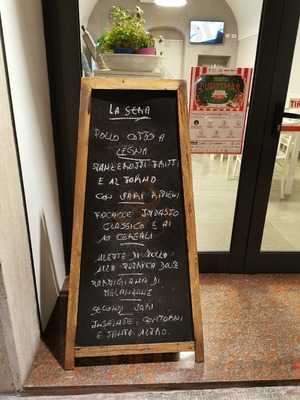 LA SERA
POLLO COTTO A
LEGNA
PANZEROTTI FRITTI
E AL FORNO
CON VARI RIPIENI
FOCACCE IMPASTO
CLASSICO E AI
10 CEREALI
ALETTE DI POLLO
ALLA BRACE
PARMIGIANA DI
MELANZANE
SECONDI VARI
INSALATE, CONTORNI
E TANTO ALTRO.